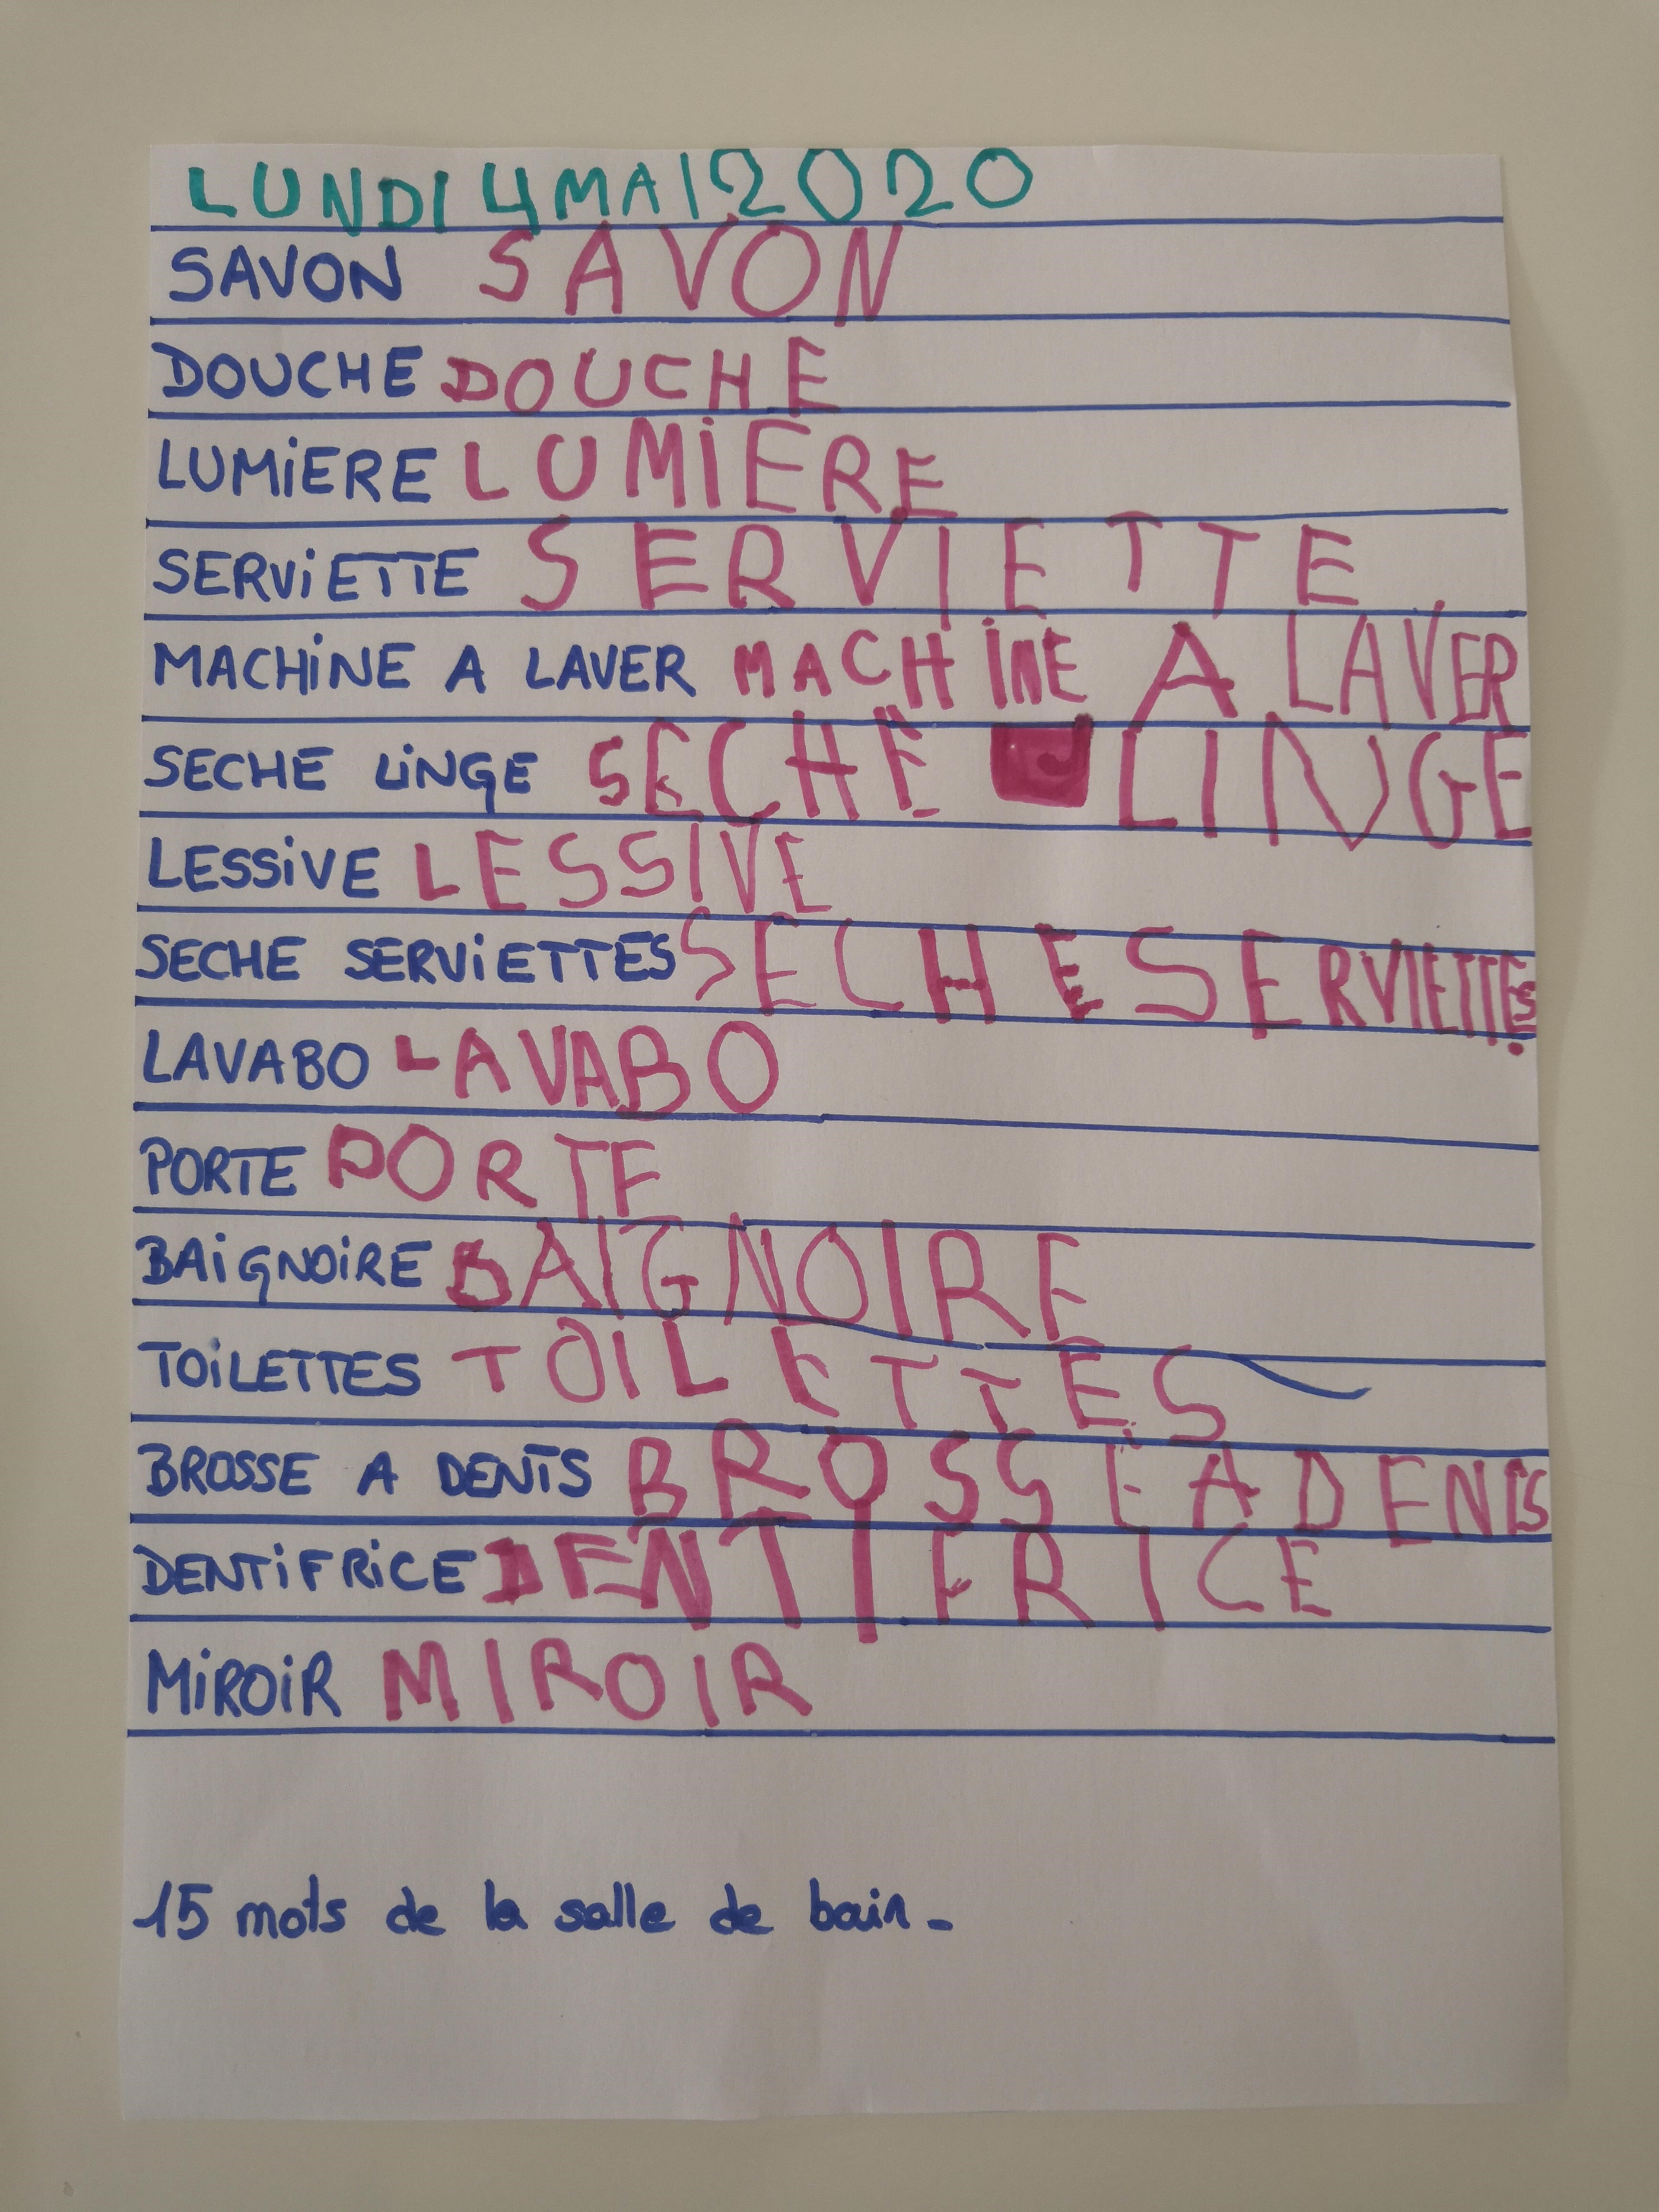 LUNDI 4 MAI 2020
SAVON SAVON
DOUCHE DOUCHE
LUMiERE LUMiERE
SERViETTE SERVIETTE
MACHiNE A LAVER MACHiNE A LAVER
SECHE LiNGE SECHE LINGE
LESSiVE LESSIVE
SECHE SERViETTES SECHE SERVIETTES
LAVABO LAVABO
PORTE PORTE
BAiGNOiRE BAIGNOIRE
TOiLETTES TOILETTES
BROSSE A DENTS BROSSE A DENTS
DENTiFRiCE DENTIFRICE
MiROiR MIROIR
15 mots de la salle de bain.